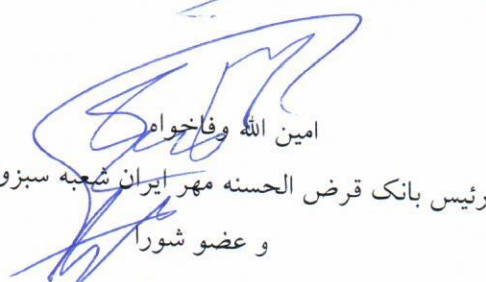 امین الله وفاخواه
رئیس بانک قرض الحسنه مهر ایران شعبه سبزو
و عضو شورا